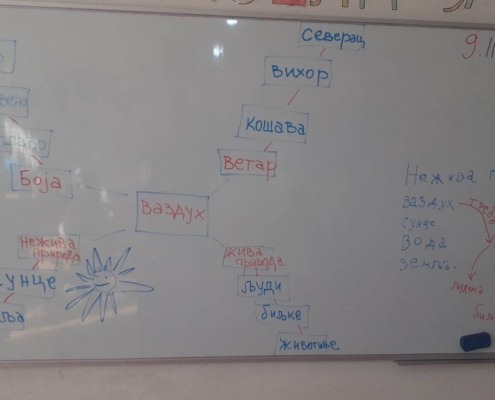 Северац
вихор
Кошава
Ветар
Боја
Ваздух
нежива
природа
жива
природа
људи
биљке
животиње
Нежива
ваздух
сунце
вода
земља.
9.11